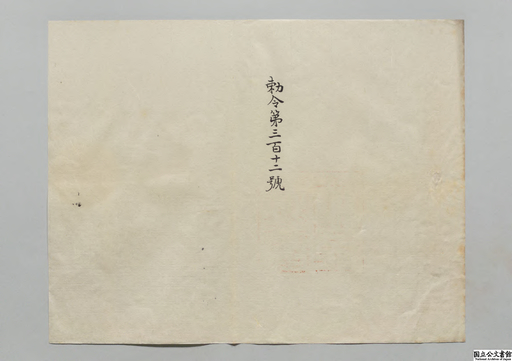 勅令第三百十二號
国立公文書館
National Archives of Japan